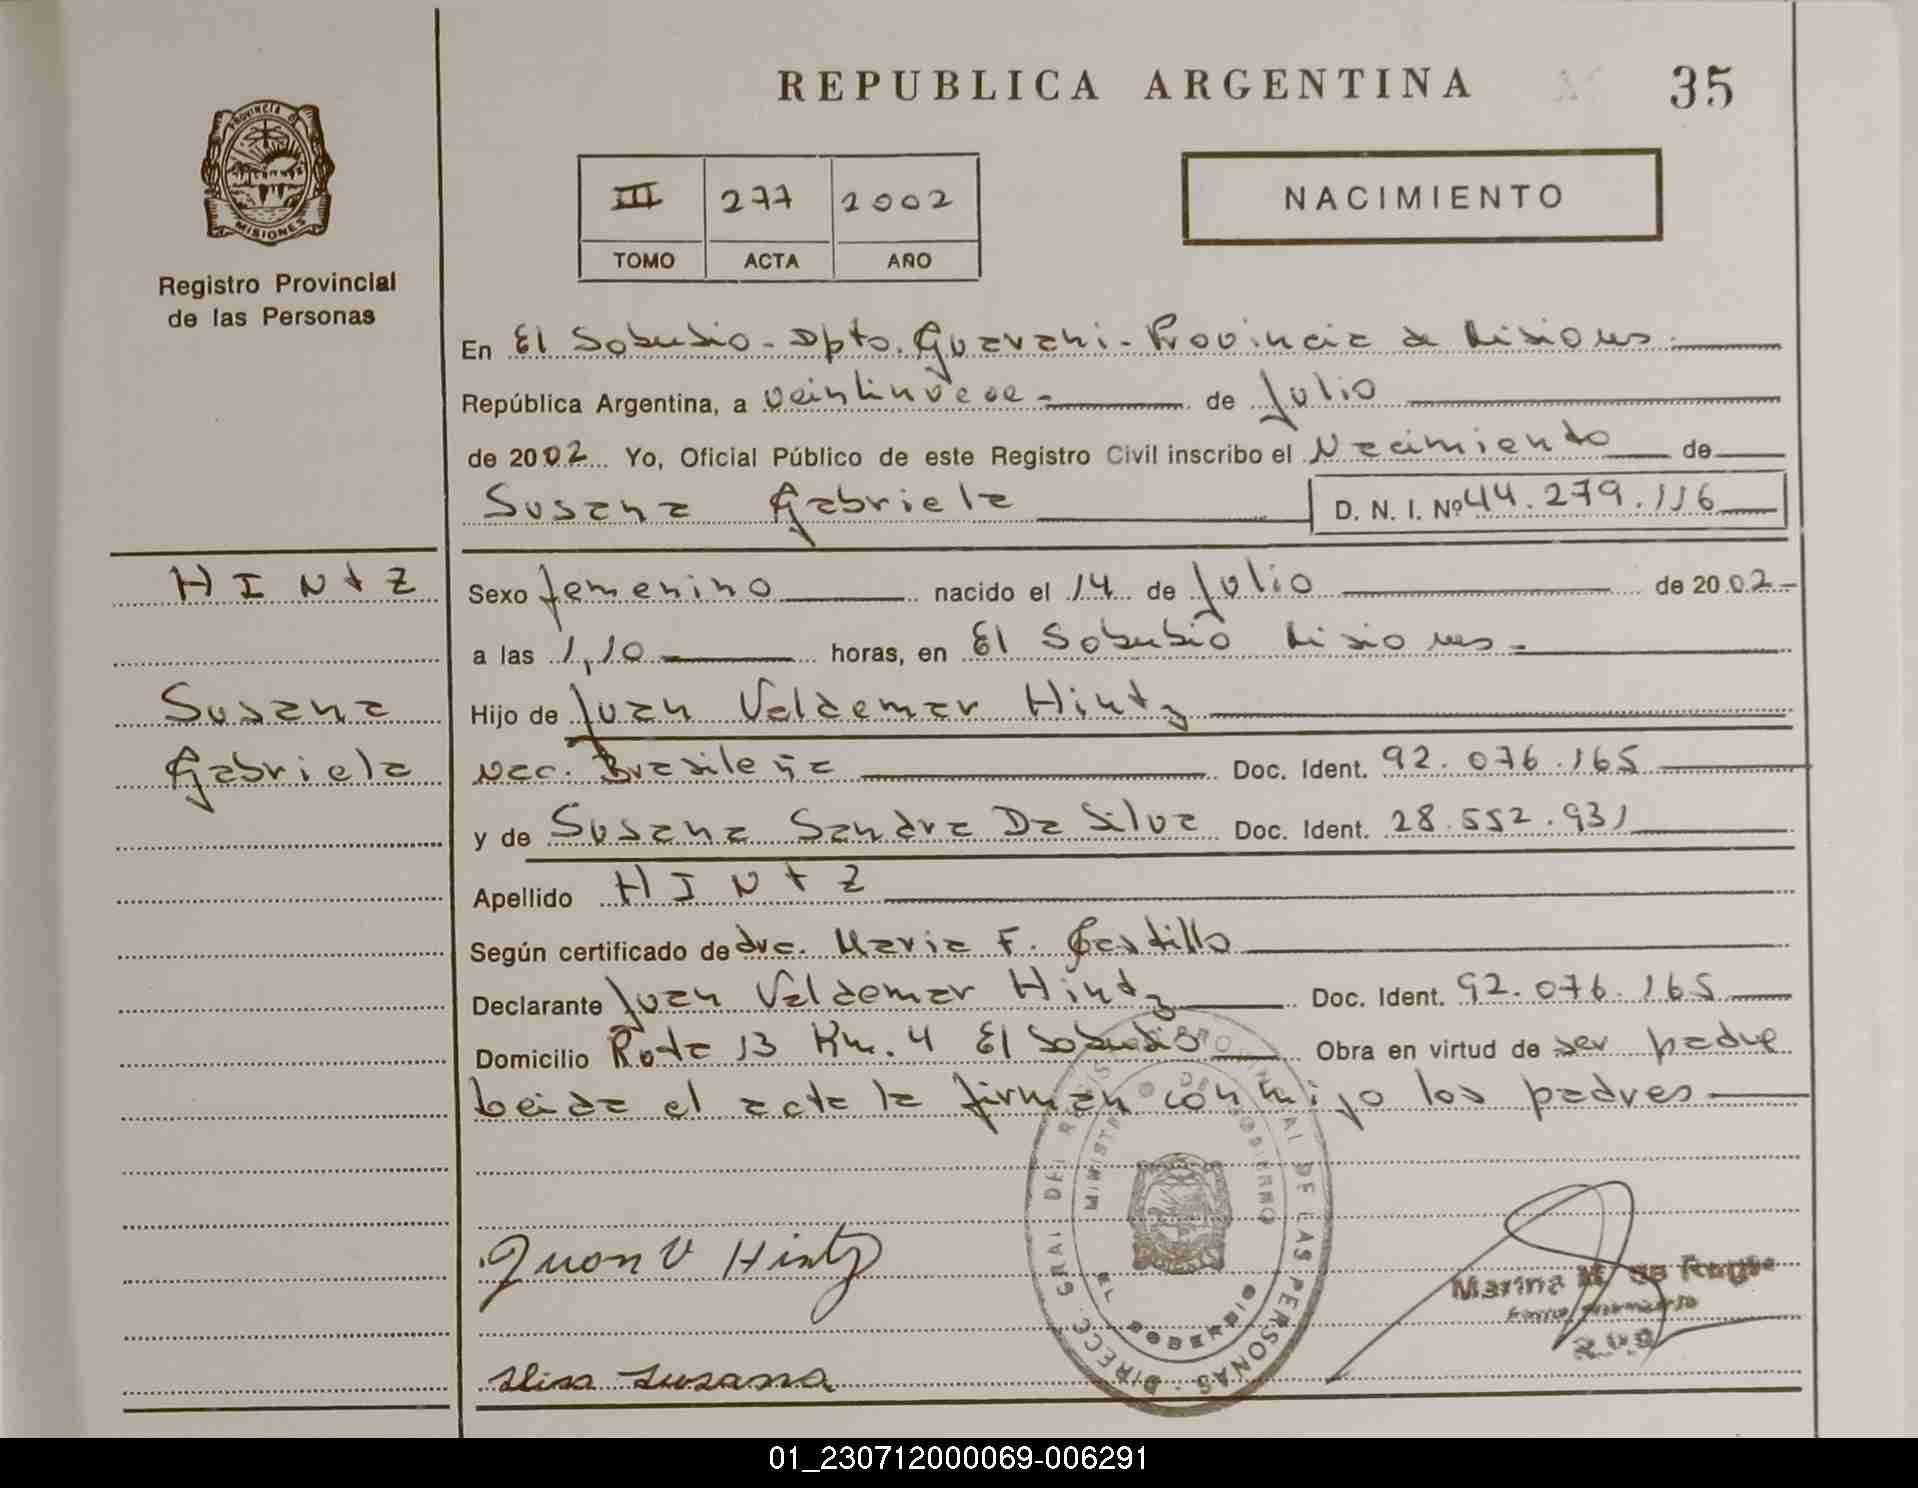 REPUBLICA ARGENTINA
35
PROVINCIA DE
MISIONES
Registro Provincial
de las Personas
III 277 2002
TOMO ACTA AÑO
NACIMIENTO
En El Soberbio - Dpto. Guarani - Provincia de Misiones
República Argentina, a veintinueve - de Julio
de 2002 Yo, Oficial Público de este Registro Civil inscribo el Nacimiento de
Susana Gabriela D. N. I. Nº 44.279.116
HINTZ
Susana
Gabriela
Sexo femenino nacido el 14 de Julio de 2002
a las 1,10 horas, en El Soberbio Misiones
Hijo de Juan Valdemar Hintz
nac. Brasileña Doc. Ident. 92.076.165
y de Susana Sandra Da Silva Doc. Ident. 28.552.931
Apellido HINTZ
Según certificado de dra. Maria F. Castillo
Declarante Juan Valdemar Hintz Doc. Ident. 92.076.165
Domicilio Ruta 13 Km. 4 El Soberbio Obra en virtud de ser padre
Leida el acta la firman conmigo los padres
DIRECC. GRAL DEL REGISTRO PROVINCIAL DE LAS PERSONAS
MINISTERIO DE GOBIERNO
EL SOBERBIO
Juan V Hintz
Susana
Marina
01_230712000069-006291